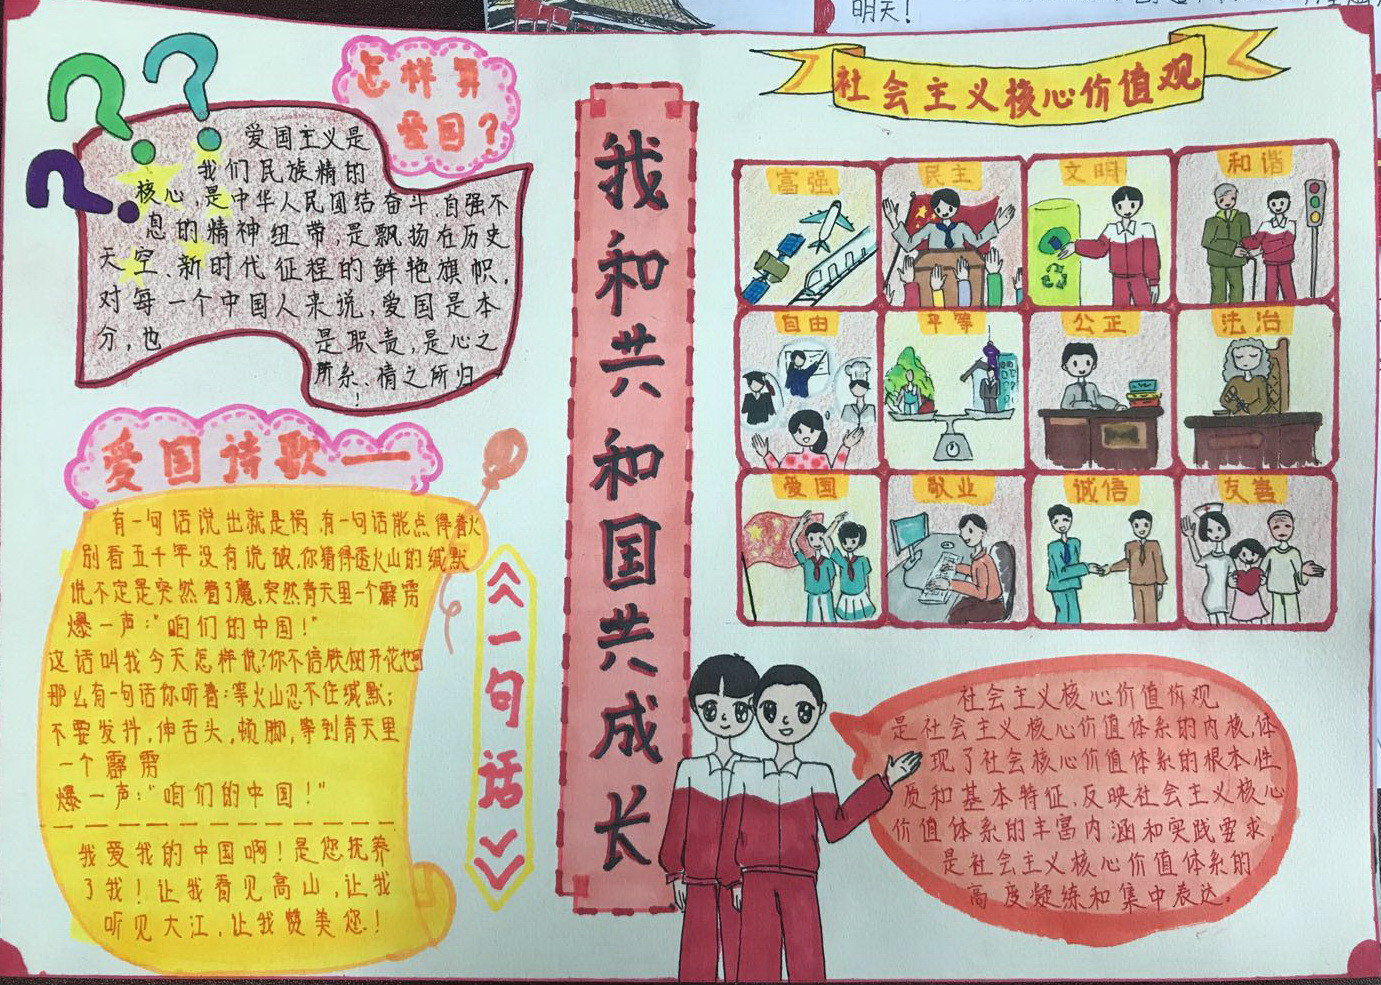 明天！
怎样算
爱国？
爱国主义是
我们民族精的
核心，是中华人民团结奋斗、自强不
息的精神纽带，是飘扬在历史
天空、新时代征程的鲜艳旗帜，
对每一个中国人来说，爱国是本
分，也是职责，是心之
所系、情之所归
！
爱国诗歌一
有一句话说出就是祸，有一句话能点得着火
别看五千年没有说破，你猜得透火山的缄默
说不定是突然着了魔，突然青天里一个霹雳
爆一声：“咱们的中国！”
这话叫我今天怎样说？你不信铁树开花也可
那么有一句话你听着：等火山忍不住缄默；
不要发抖，伸舌头，顿脚，等到青天里
一个霹雳
爆一声：“咱们的中国！”
我爱我的中国啊！是您抚养
了我！让我看见高山，让我
听见大江，让我赞美您！
《一句话》
我和共和国共成长
社会主义核心价值观
富强
民主
文明
和谐
自由
平等
公正
法治
爱国
敬业
诚信
友善
社会主义核心价值价观
是社会主义核心价值体系的内核，体
现了社会核心价值体系的根本性
质和基本特征，反映社会主义核心
价值体系的丰富内涵和实践要求，
是社会主义核心价值体系的
高度凝练和集中表达。